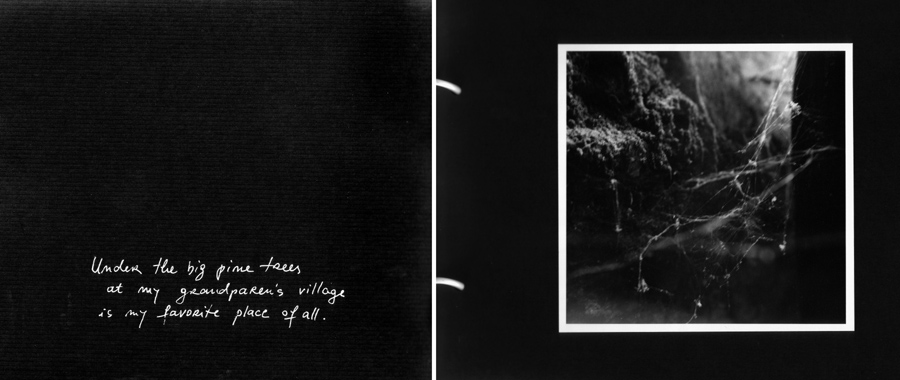 Under the big pine trees
at my grandparen's village
is my favorite place of all.